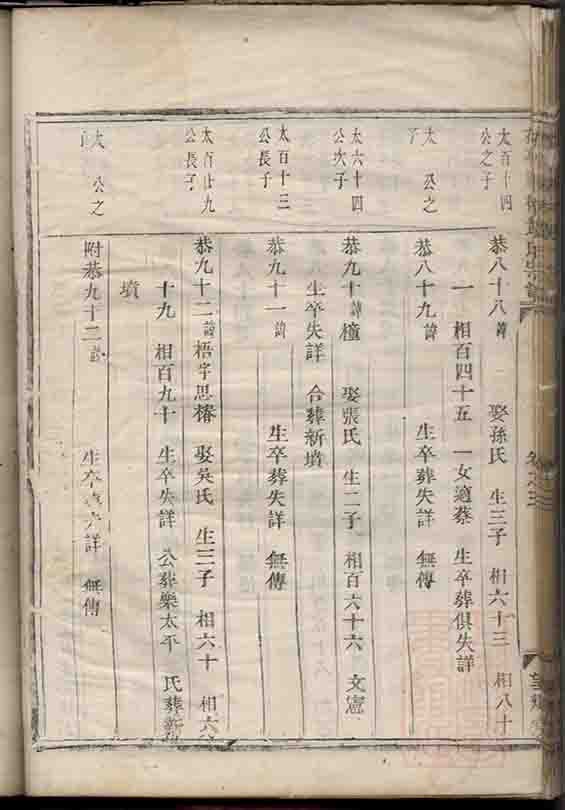 太百十四
公之子
恭八十八諱 娶孫氏 生三子 相六十三 相八十
一 相百四十五 一女適蔡 生卒葬俱失詳
太 公之
子
恭八十九諱 生卒葬失詳 無傳
太六十四
公次子
恭九十諱橦 娶張氏 生二子 相百六十六 文憲
生卒失詳 合葬新墳
太百十三
公長子
恭九十一諱 生卒葬失詳 無傳
太百廿九
公長子
恭九十二諱梧字思椿 娶吳氏 生三子 相六十 相六
十九 相百九十 生卒失詳 公葬樂太平 氏葬新
墳
太 公之
附恭九十二諱 生卒 失詳 無傳